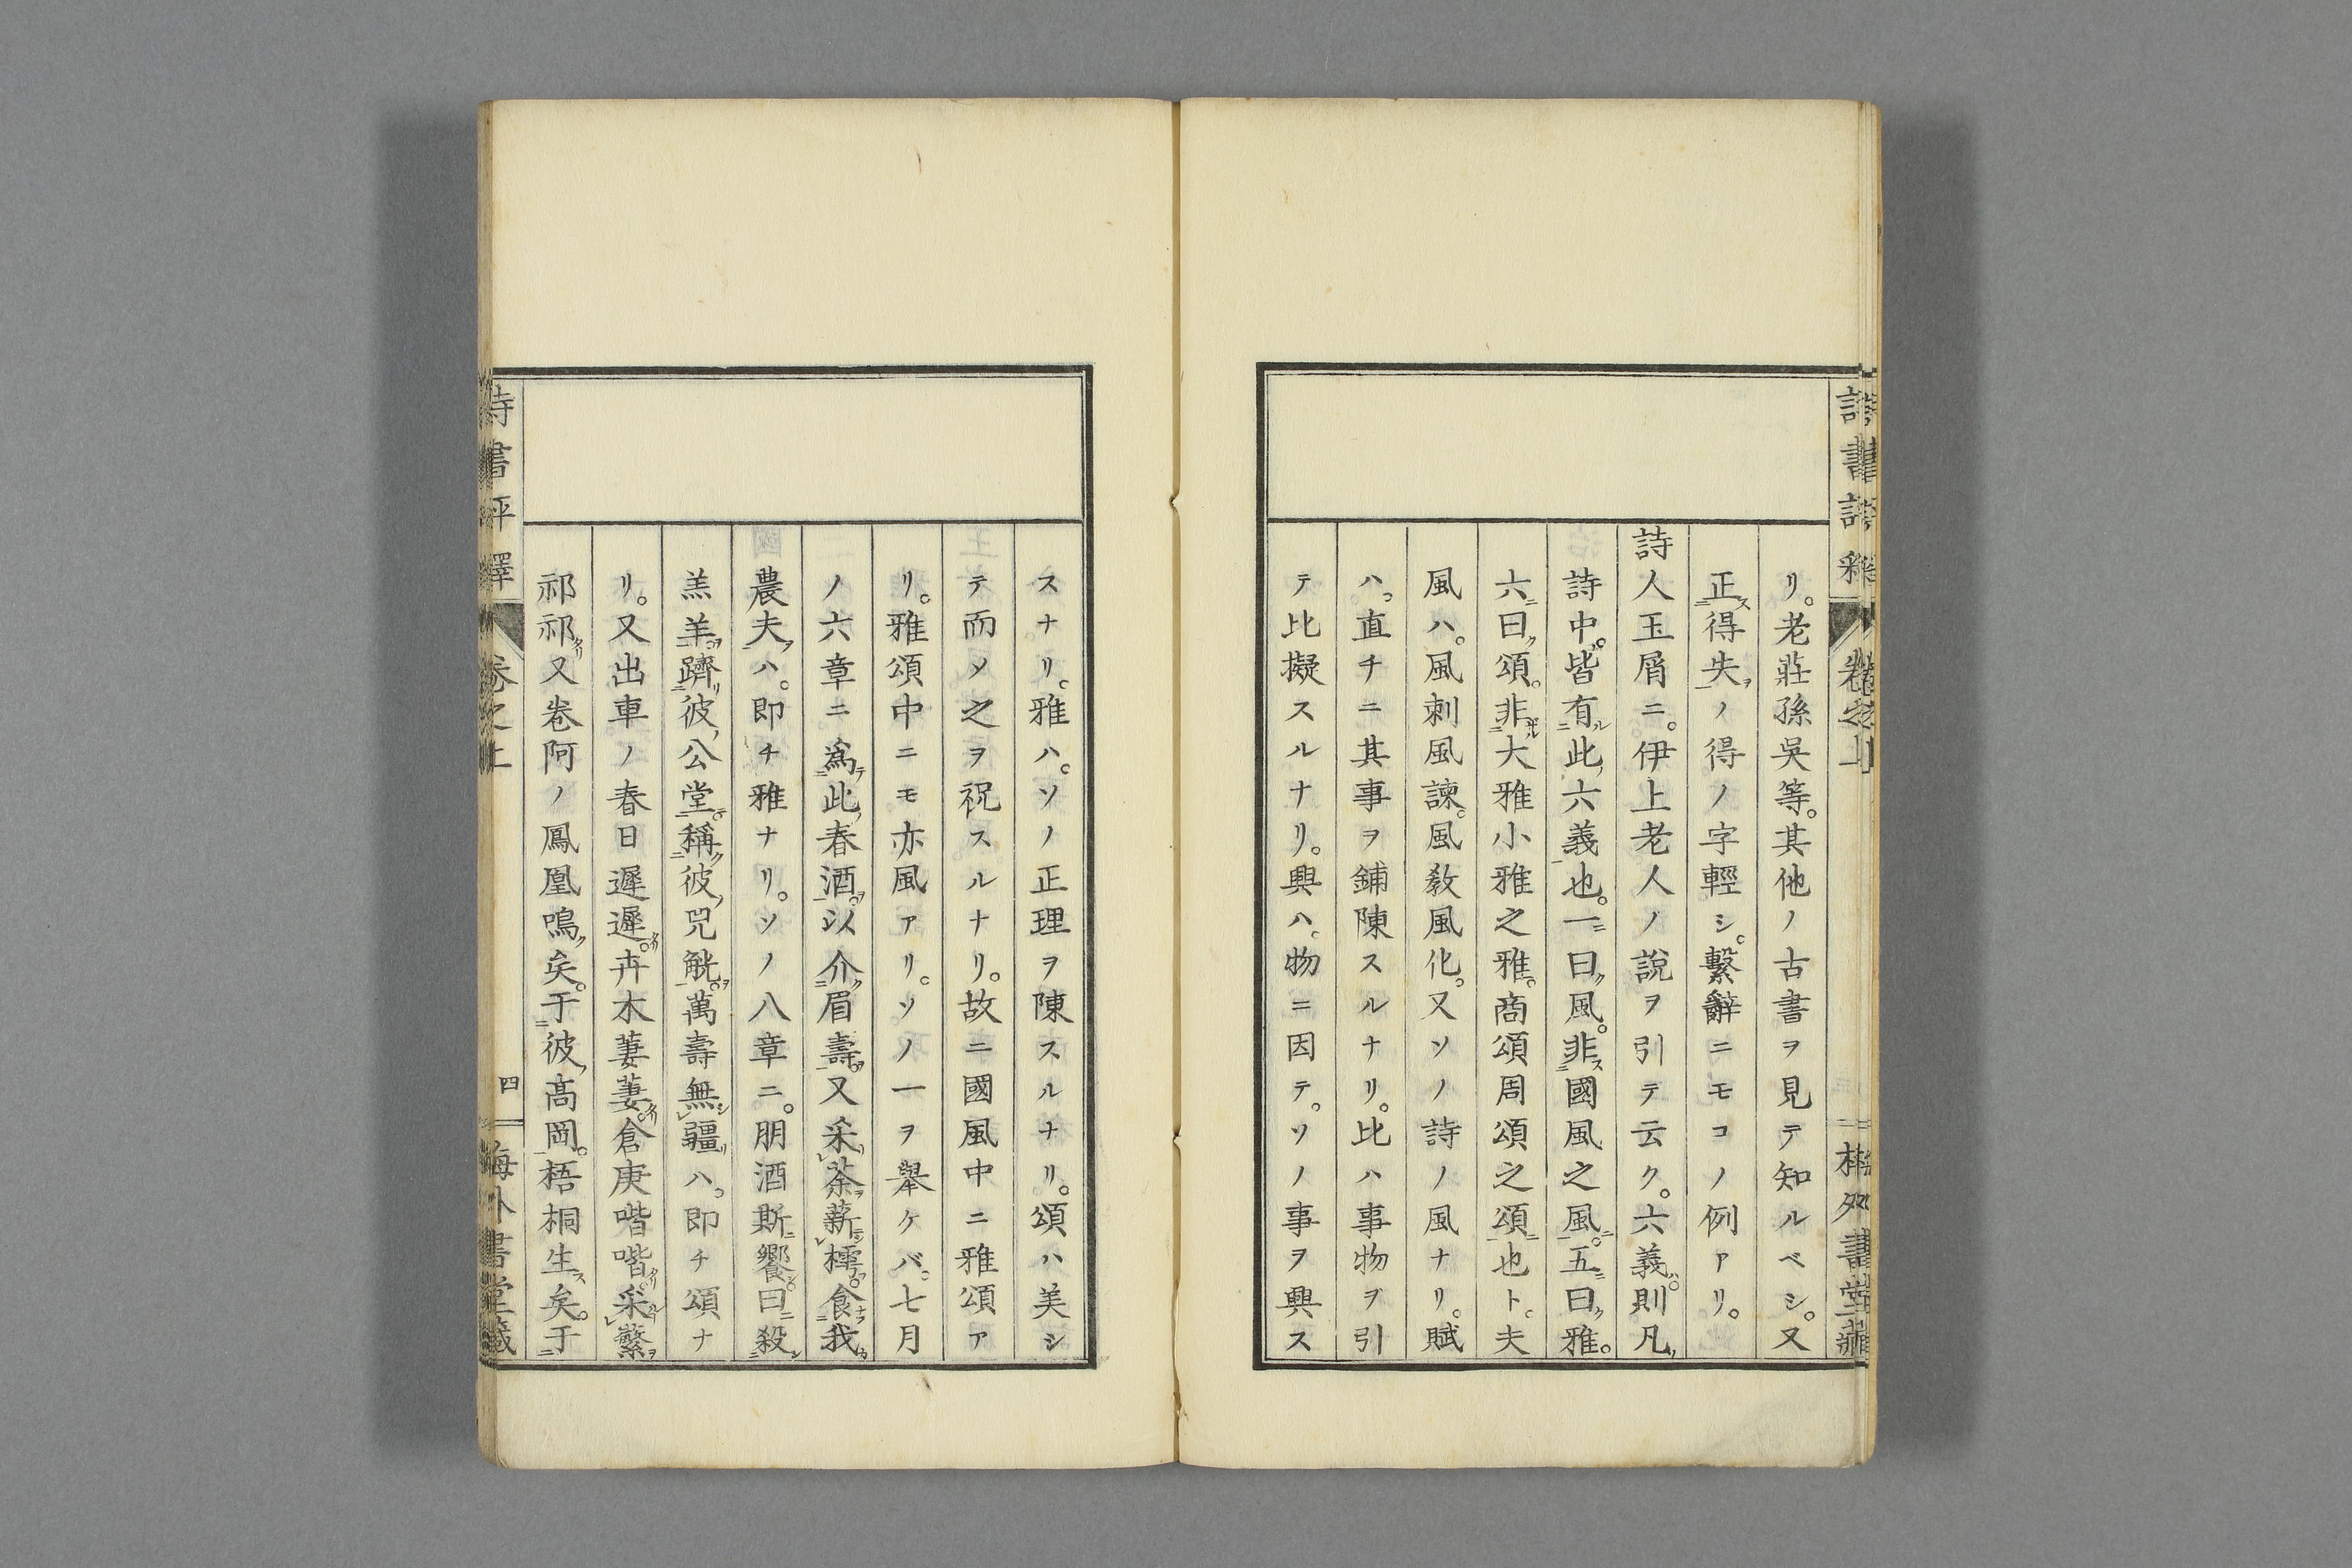 リ。老莊孫吳等。其他ノ古書ヲ見テ知ルベシ。又
正得失ノ得ノ字輕シ。繫辭ニモコノ例アリ。
詩人玉屑ニ。伊上老人ノ說ヲ引テ云ク。六義則凡
詩中。皆有此六義也。一曰風。非國風之風。五曰雅。
六曰頌。非大雅小雅之雅。商頌周頌之頌也ト。夫
風ハ。風刺風諫。風敎風化。又ソノ詩ノ風ナリ。賦
ハ。直チニ其事ヲ鋪陳スルナリ。比ハ事物ヲ引
テ比擬スルナリ。興ハ。物ニ因テ。ソノ事ヲ興ス
スナリ。雅ハ。ソノ正理ヲ陳スルナリ。頌ハ美シ
テ而ソ之ヲ祝スルナリ。故ニ國風中ニ雅頌ア
リ。雅頌中ニモ亦風アリ。ソノ一ヲ舉ケバ。七月
ノ六章ニ爲此春酒。以介眉壽。又采荼薪樗。食我
農夫ハ。即チ雅ナリ。ソノ八章ニ。朋酒斯饗。曰殺
羔羊。躋彼公堂。稱彼兕觥。萬壽無疆ハ。即チ頌ナ
リ。又出車ノ春日遲遲。卉木萋萋。倉庚喈喈。采蘩
祁祁又卷阿ノ鳳凰鳴矣。于彼高岡。梧桐生矣。于
詩書評釋
卷之上
四
梅外書堂藏